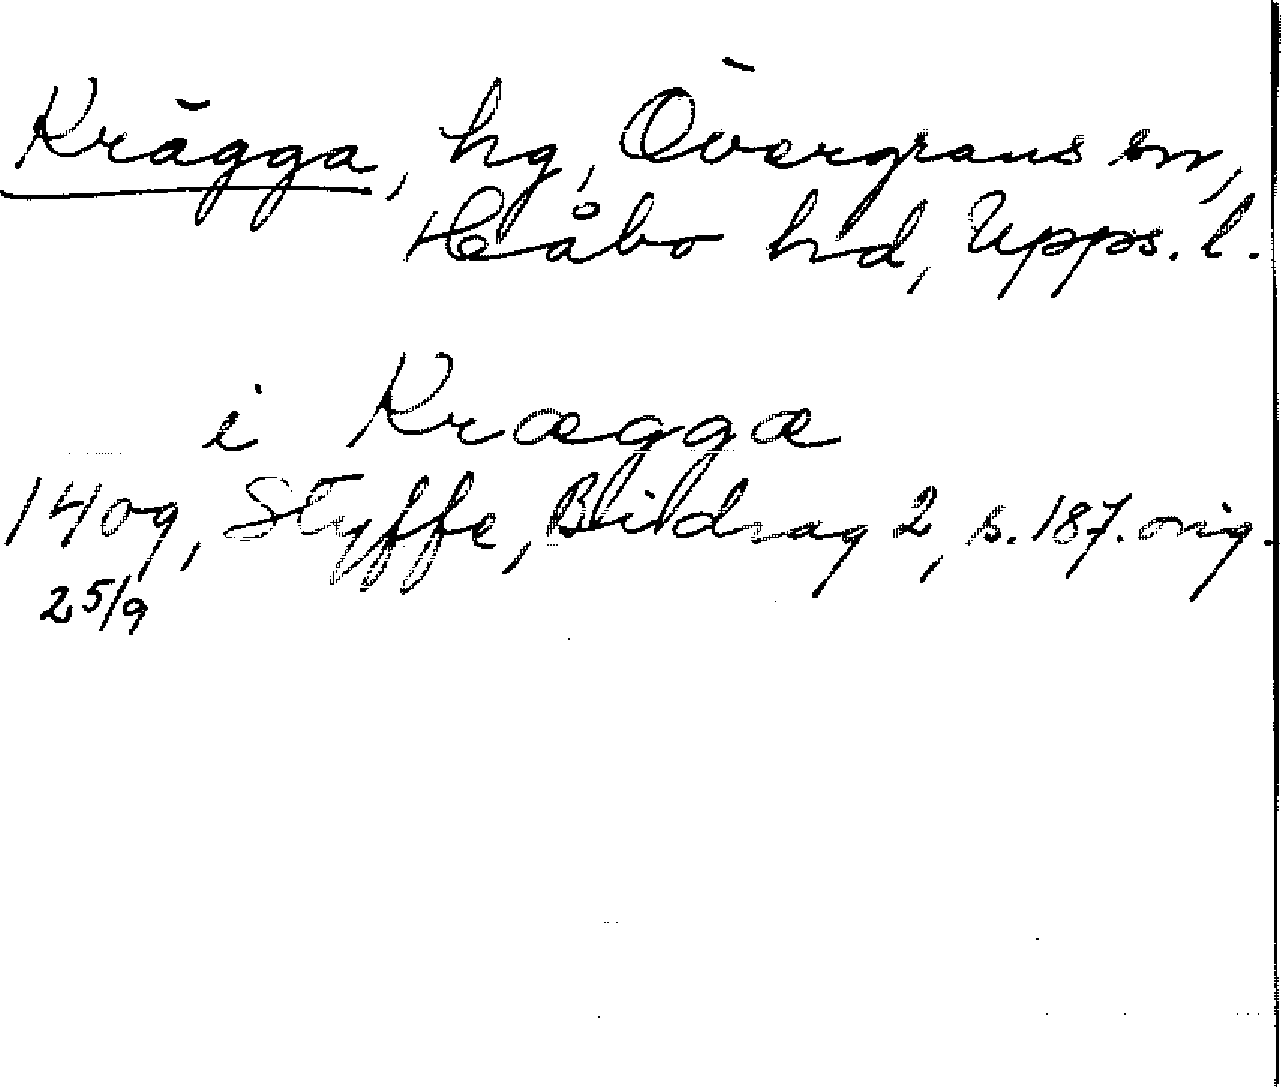 Krägga, hg, Övergrans sn,
Håbo hd, Upps. l.
i Kræggæ
1409, Styffe, Bidrag 2, s. 187. orig.
25/9